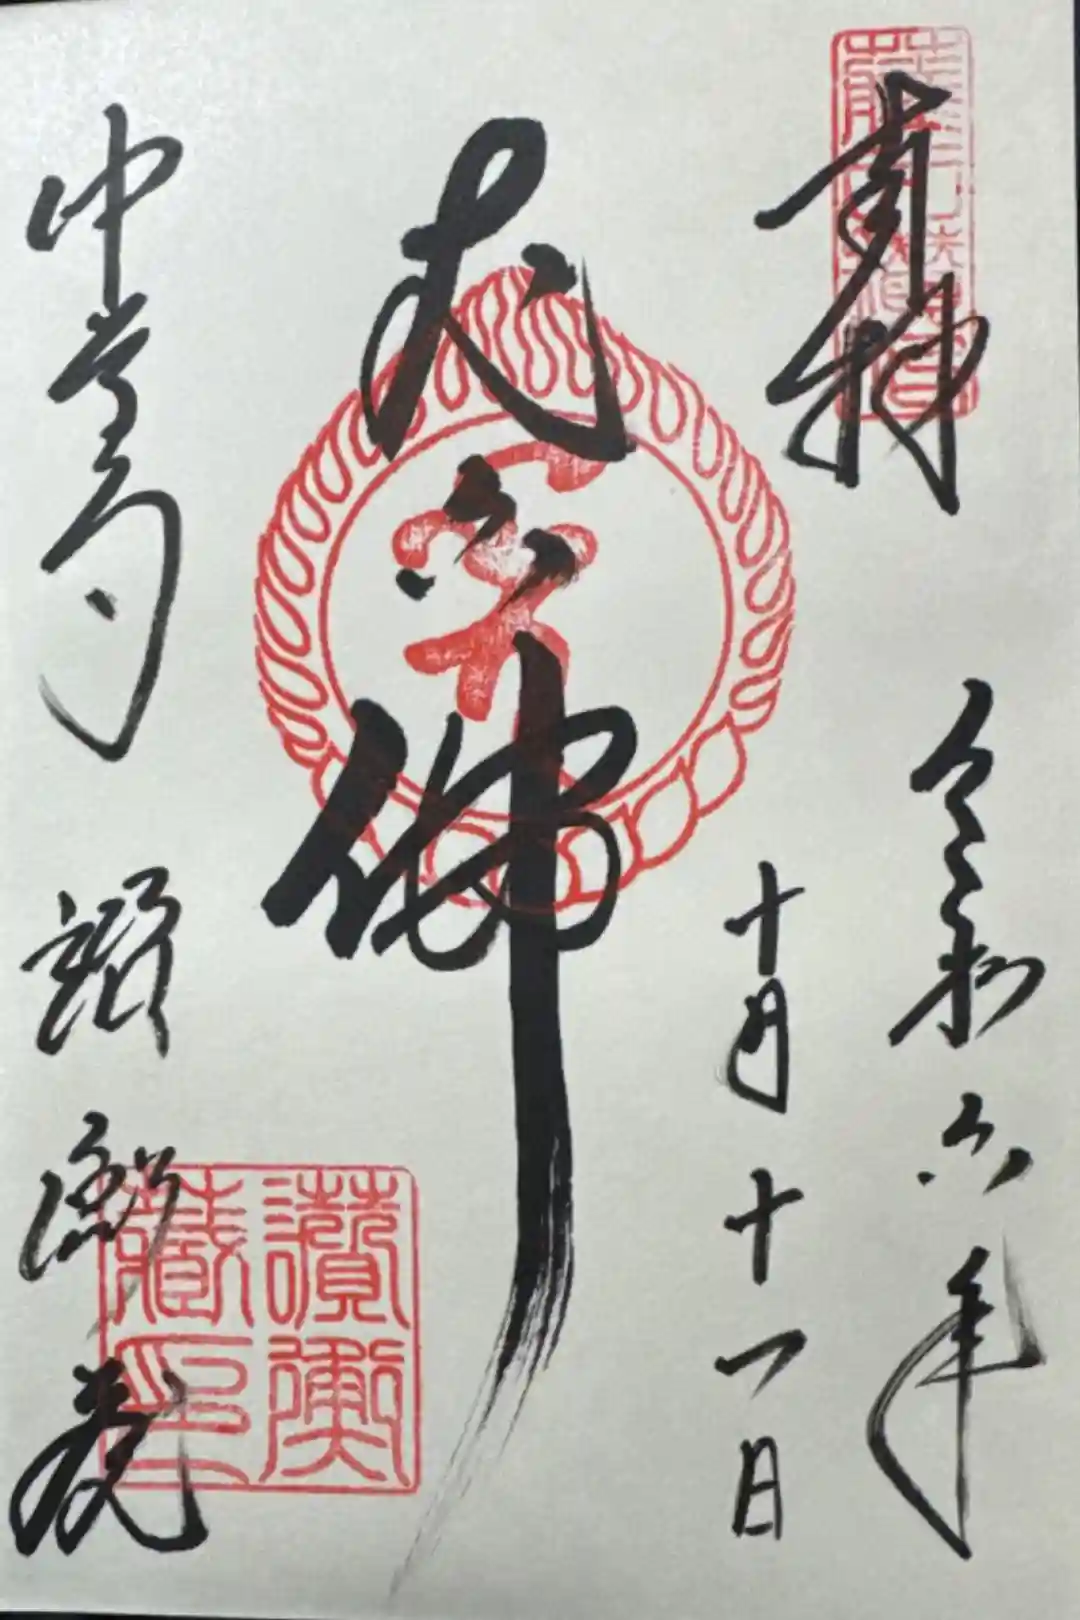 奉拝
令和六年
十月十一日
丈六佛
中尊寺
讃衡蔵
讃衡
蔵印